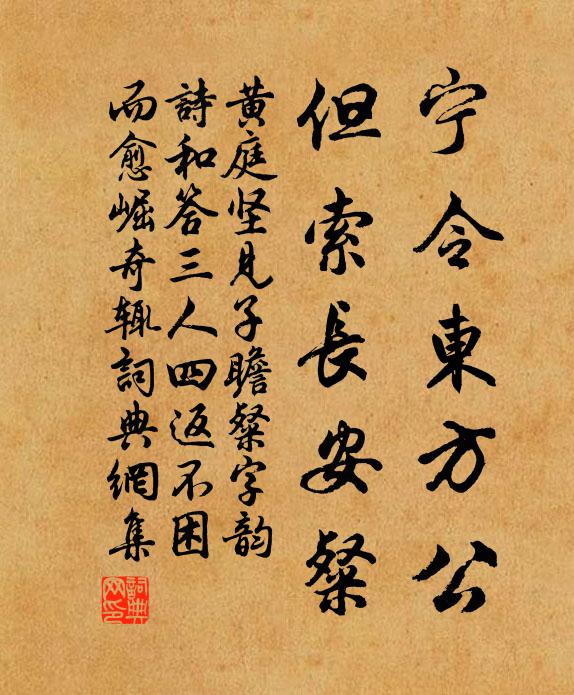 宁令東方公
但索長安粲
黄庭坚見子瞻粲字韵
詩和答三人四返不困
而愈崛奇辄詞典網集
詞典网印